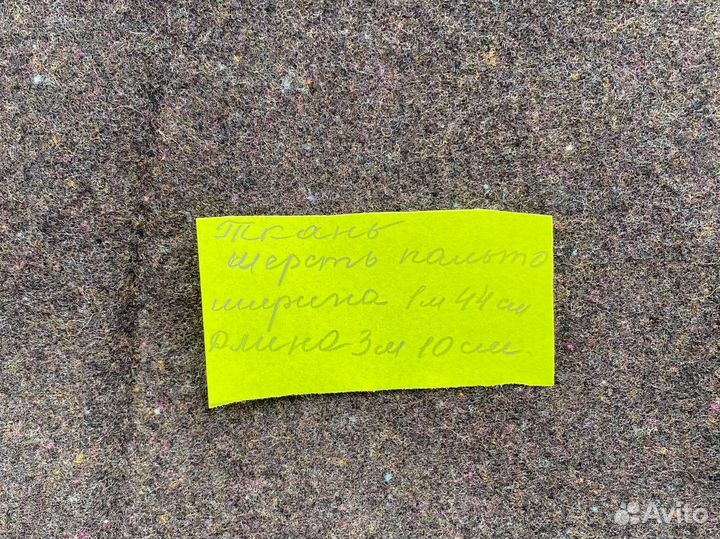 Ткань
шерсть пальто
ширина 1м 44 см
длина 3м 10 см.
Avito